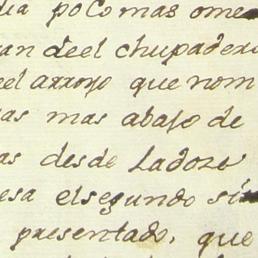 dia poco mas ome
an deel chupadero
eel arroyo que nom
as mas abajo de
as desde Ladoze
esa elsegundo si
presentado, que